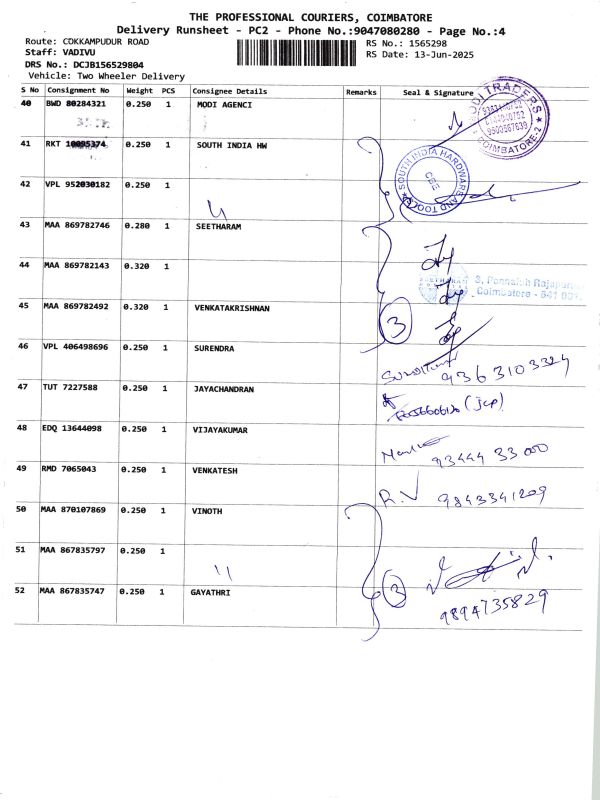 THE PROFESSIONAL COURIERS, COIMBATORE
Delivery Runsheet - PC2 - Phone No.:9047080280 - Page No.:4
Route: COKKAMPUDUR ROAD
RS No.: 1565298
Staff: VADIVU
RS Date: 13-Jun-2025
DRS No.: DCJB156529804
Vehicle: Two Wheeler Delivery
S No Consignment No Weight PCS Consignee Details Remarks Seal & Signature
40 BWD 80284321 0.250 1 MODI AGENCI
TRADERS
9500567639
COIMBATORE-2
41 RKT 10095374 0.250 1 SOUTH INDIA HW
SOUTH INDIA HARDWARE AND TOOLS
CBE
42 VPL 952030182 0.250 1
43 MAA 869782746 0.280 1 SEETHARAM
44 MAA 869782143 0.320 1
3, Ponnaiah Rajapuram
Coimbatore - 641 001.
45 MAA 869782492 0.320 1 VENKATAKRISHNAN
3
46 VPL 406498696 0.250 1 SURENDRA
9363103324
47 TUT 7227588 0.250 1 JAYACHANDRAN
(jcp)
48 EDQ 13644098 0.250 1 VIJAYAKUMAR
93444 33000
49 RMD 7065043 0.250 1 VENKATESH
R.V 9843341209
50 MAA 870107869 0.250 1 VINOTH
51 MAA 867835797 0.250 1
52 MAA 867835747 0.250 1 GAYATHRI
3
9894735829